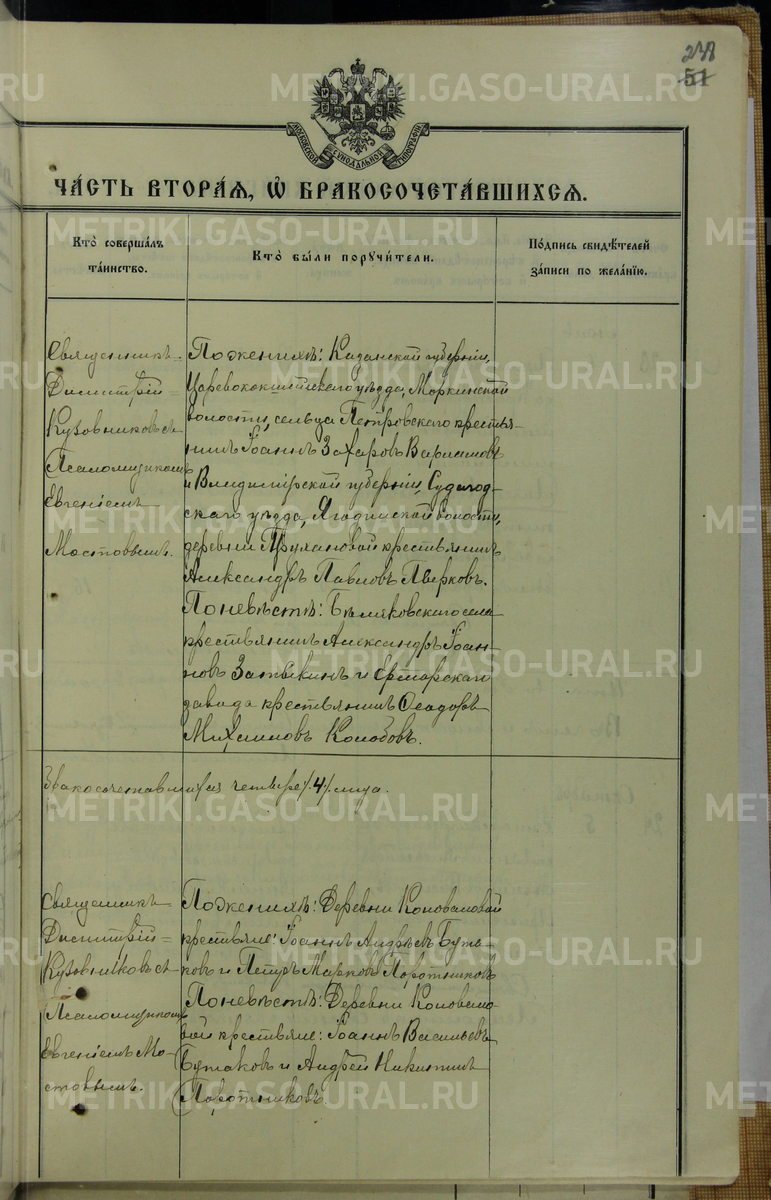 248
51
МОСКОВСКОЙ СѴНОДАЛЬНОЙ ТИПОГРАФІИ
ЧА́СТЬ ВТОРА́Ѧ, Ѡ҆ БРАКОСОЧЕТА́ВШИХСѦ.
Кто̀ соверша́лъ
та́инство.
Кто̀ бы́ли порꙋчи́тели.
По́дпись свидѣ́телей
за́писи по жела́нїю.
Священникъ
Димитрій
Кузовниковъ съ
Псаломщикомъ
Евгеніемъ
Мостовымъ.
По женихѣ: Казанской губерніи,
Царевококшайскаго уѣзда, Моркинской
волости, сельца Петровскаго крестья-
нинъ Іоаннъ Захаровъ Варламовъ
и Владимірской губерніи, Судогод-
скаго уѣзда, Ягодинской волости,
деревни Трухановой крестьянинъ
Александръ Павловъ Пырковъ.
По невѣстѣ: Бѣляковскаго села
крестьянинъ Александръ Іоан-
новъ Затыкинъ и Ертарскаго
завода крестьянинъ Ѳеодоръ
Михаиловъ Колобовъ.
Бракосочетавшихся четыре /4/ лица.
Священникъ
Димитрій
Кузовниковъ съ
Псаломщикомъ
Евгеніемъ Мо-
стовымъ.
По женихѣ: Деревни Коноваловой
крестьяне: Іоаннъ Андреевъ Бута-
ковъ и Петръ Марковъ Поротниковъ
По невѣстѣ: Деревни Коновало-
вой крестьяне: Іоаннъ Васильевъ
Бутаковъ и Андрей Никитинъ
Поротниковъ.
METRIKI.GASO-URAL.RU